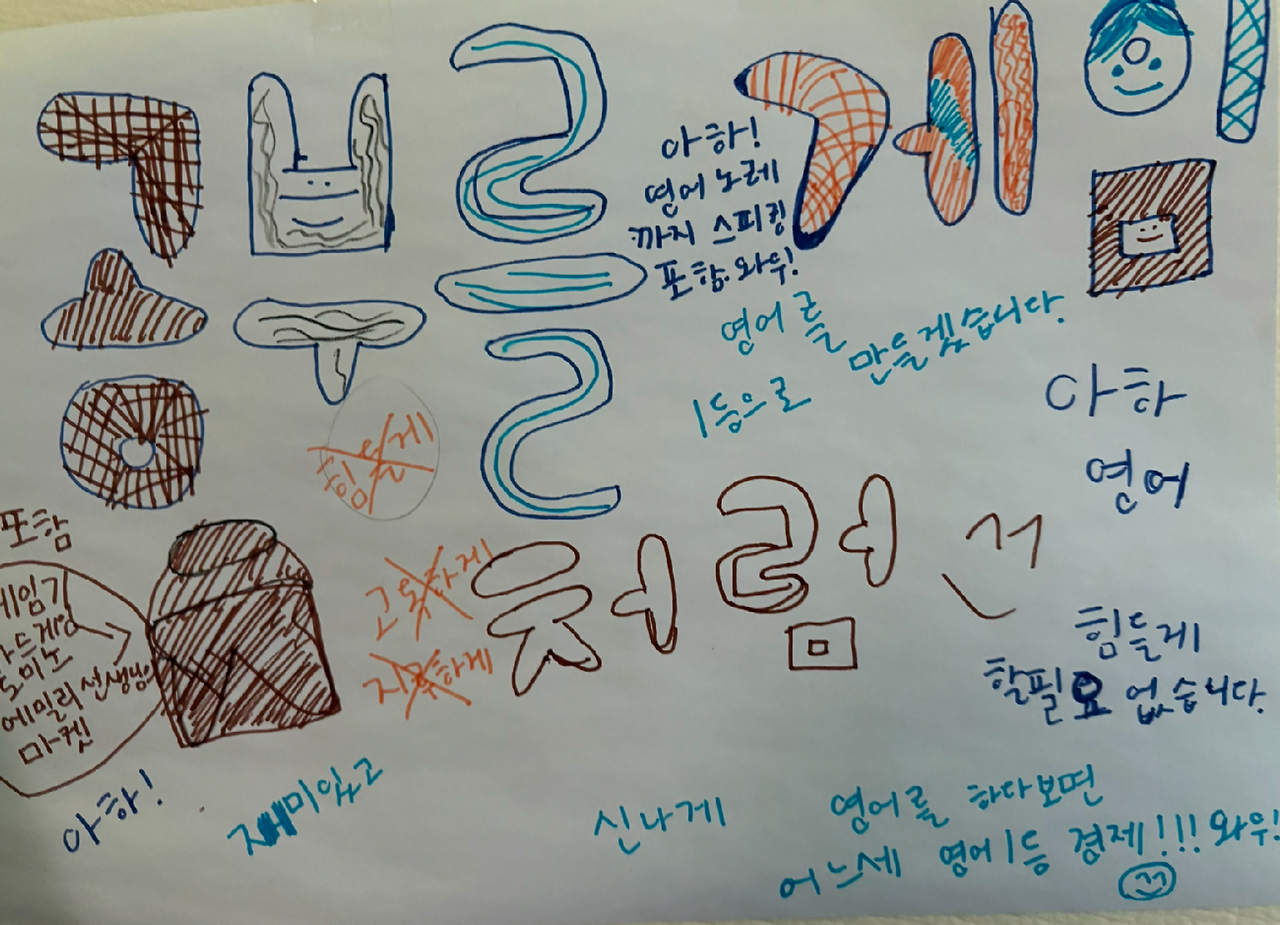 공부를 게임
아하!
영어 노레
까지 스피킹
포함. 와우!
영어를
1등으로 만들겠습니다.
아하
영어
힘들게
처럼
포함
게임기
카드게임
도미노
에밀리 선생님
마켓
지루하게
힘들게
할필요 없습니다.
아하!
재미있고
신나게
영어를 하다보면
어느세 영어1등 경제!!! 와우!